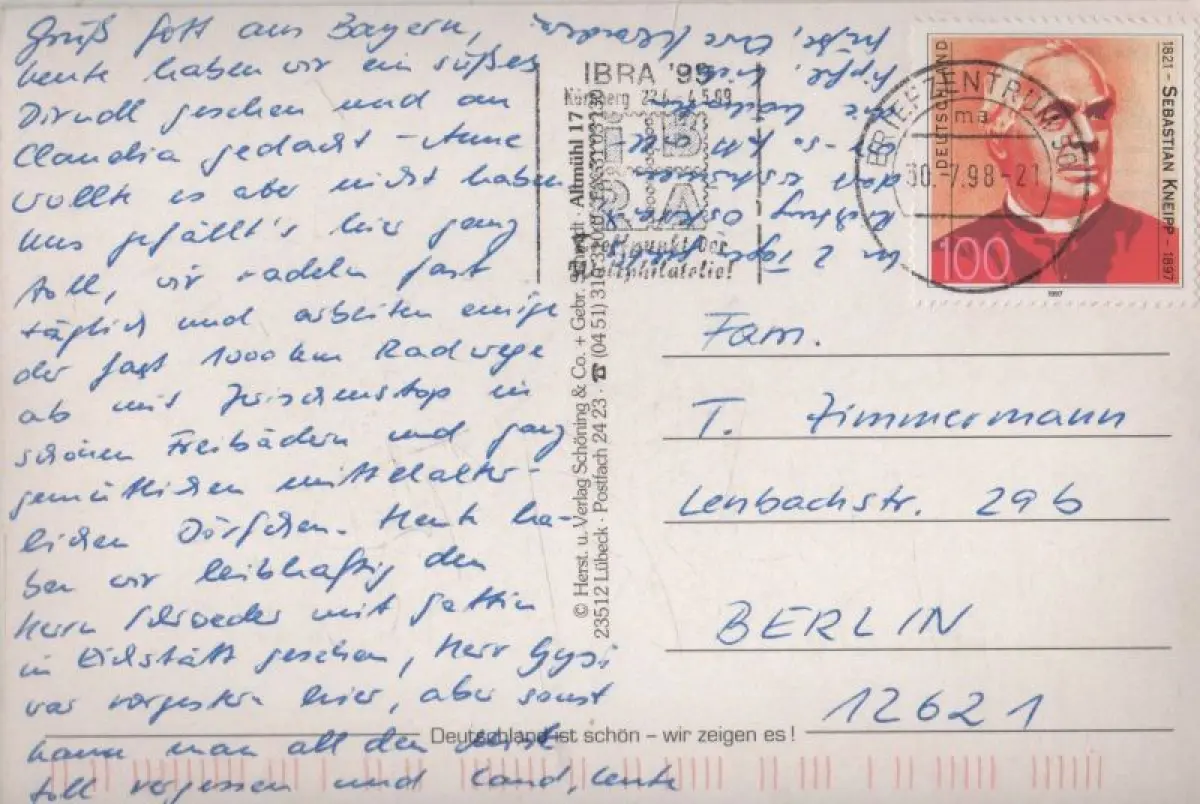 Grüß Gott aus Bayern,
heute haben wir ein süßes
Dirndl gesehen und an
Claudia gedacht - Anne
wollte es aber nicht haben
Uns gefällt's hier ganz
toll, wir radeln fast
täglich und arbeiten einige
der fast 1000 km Radwege
ab mit Zwischenstop in
schönen Freibädern und ganz
gemütlichen mittelalter-
lichen Dörfchen. Heute ha-
ben wir leibhaftig den
Herrn Schroeder mit Gattin
in Eichstätt gesehen, Herr Gysi
war vorgestern hier, aber sonst
kann man all den Mist
toll vergessen und Land, Leute
In 2 Tagen
Richtung Ostsee
dort
© Herst. u. Verlag Schöning & Co. + Gebr. Schmidt · Altmühl 17
23512 Lübeck · Postfach 24 23 · ☎ (04 51) 3 10 3
IBRA '99
Nürnberg 27.4.-4.5.99
IB
RA
Treffpunkt der
Weltphilatelie!
BRIEFZENTRUM 90
ma
30.-7.98-21
DEUTSCHLAND
1821 - SEBASTIAN KNEIPP - 1897
100
1997
Fam.
T. Zimmermann
Lenbachstr. 29b
BERLIN
12621
Deutschland ist schön – wir zeigen es !